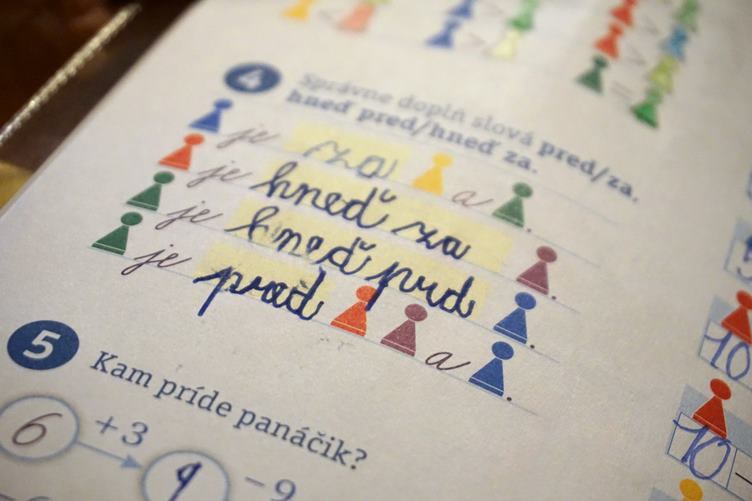 4 Správne doplň slová pred/za,
hneď pred/hneď za.
je za a .
je hneď za .
je hneď pred .
je pred a .
5 Kam príde panáčik?
6 +3 9 -9
10
10